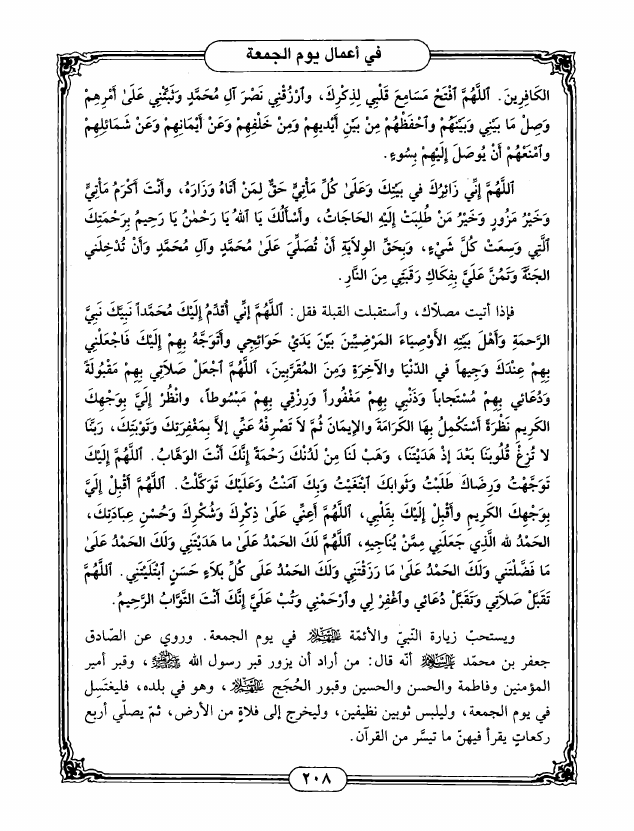 في أعمال يوم الجمعة
الكَافِرِينَ. اَللَّهُمَّ افْتَحْ مَسَامِعَ قَلْبِي لِذِكْرِكَ، وٱرْزُقْنِي نَصْرَ آلِ مُحَمَّدٍ وَثَبِّتْنِي عَلَىٰ أَمْرِهِمْ
وَصِلْ مَا بَيْنِي وَبَيْنَهُمْ وٱحْفَظْهُمْ مِنْ بَيْنِ أَيْدِيهِمْ وَمِنْ خَلْفِهِمْ وَعَنْ أَيْمَانِهِمْ وَعَنْ شَمَائِلِهِمْ
وٱمْنَعْهُمْ أَنْ يُوصَلَ إِلَيْهِمْ بِسُوءٍ.
اَللَّهُمَّ إِنِّي زَائِرُكَ في بَيْتِكَ وَعَلَىٰ كُلِّ مَأْتِيٍّ حَقٌّ لِمَنْ أَتَاهُ وَزَارَهُ، وَأَنْتَ أَكْرَمُ مَأْتِيٍّ
وَخَيْرُ مَزُورٍ وَخَيْرُ مَنْ طُلِبَتْ إِلَيْهِ الحَاجَاتُ، وَأَسْأَلُكَ يَا اَللهُ يَا رَحْمٰنُ يَا رَحِيمُ بِرَحْمَتِكَ
ٱلَّتِي وَسِعَتْ كُلَّ شَيْءٍ، وَبِحَقِّ الوِلاَيَةِ أَنْ تُصَلِّيَ عَلَىٰ مُحَمَّدٍ وَآلِ مُحَمَّدٍ وَأَنْ تُدْخِلَنِي
الجَنَّةَ وَتَمُنَّ عَلَيَّ بِفِكَاكِ رَقَبَتِي مِنَ النَّارِ.
فإذا أتيت مصلاّك، وٱستقبلت القبلة فقل: اَللَّهُمَّ إِنِّي أُقَدِّمُ إِلَيْكَ مُحَمَّداً نَبِيَّكَ نَبِيَّ
الرَّحمَةِ وَأَهْلَ بَيْتِهِ الأَوْصِيَاءَ المَرْضِيِّينَ بَيْنَ يَدَيْ حَوَائِجِي وأَتَوَجَّهُ بِهِمْ إِلَيْكَ فَاجْعَلْنِي
بِهِمْ عِنْدَكَ وَجِيهاً في الدّنْيَا والآخِرَةِ وَمِنَ المُقَرَّبِينَ، اَللَّهُمَّ اجْعَلْ صَلاَتِي بِهِمْ مَقْبُولَةً
وَدُعَائِي بِهِمْ مُسْتَجَاباً وَذَنْبِي بِهِمْ مَغْفُوراً وَرِزْقِي بِهِمْ مَبْسُوطاً، وانْظُرْ إِلَيَّ بِوَجْهِكَ
الكَرِيمِ نَظْرَةً أَسْتَكْمِلُ بِهَا الكَرَامَةَ والإِيمَانَ ثُمَّ لاَ تَصْرِفْهُ عَنِّي إِلاَّ بِمَغْفِرَتِكَ وَتَوْبَتِكَ، رَبَّنَا
لا تُزِغْ قُلُوبَنَا بَعْدَ إِذْ هَدَيْتَنَا، وَهَبْ لَنَا مِنْ لَدُنْكَ رَحْمَةً إِنَّكَ أَنْتَ الوَهَّابُ. اَللَّهُمَّ إِلَيْكَ
تَوَجَّهْتُ وَرِضَاكَ طَلَبْتُ وَثَوابَكَ ابْتَغَيْتُ وَبِكَ آمَنْتُ وَعَلَيْكَ تَوَكَّلْتُ. اَللَّهُمَّ أَقْبِلْ إِلَيَّ
بِوَجْهِكَ الكَرِيمِ وأَقْبِلْ إِلَيْكَ بِقَلْبِي، اَللَّهُمَّ أَعِنِّي عَلَىٰ ذِكْرِكَ وَشُكْرِكَ وَحُسْنِ عِبَادَتِكَ،
الحَمْدُ لله الَّذِي جَعَلَنِي مِمَّنْ يُنَاجِيهِ، اَللَّهُمَّ لَكَ الحَمْدُ عَلَىٰ ما هَدَيْتَنِي وَلَكَ الحَمْدُ عَلَىٰ
مَا فَضَّلْتَنِي وَلَكَ الحَمْدُ عَلَىٰ مَا رَزَقْتَنِي وَلَكَ الحَمْدُ عَلَى كُلِّ بَلاَءٍ حَسَنٍ ابْتَلَيْتَنِي. اَللَّهُمَّ
تَقَبَّلْ صَلاَتِي وَتَقَبَّلْ دُعَائي واغْفِرْ لِي وٱرْحَمْنِي وَتُبْ عَلَيَّ إِنَّكَ أَنْتَ التَّوَّابُ الرَّحِيمُ.
ويستحبّ زيارة النّبيّ والأئمّة عليهم السلام في يوم الجمعة. وروي عن الصّادق
جعفر بن محمّد عليه السلام أنّه قال: من أراد أن يزور قبر رسول الله ﷺ، وقبر أمير
المؤمنين وفاطمة والحسن والحسين وقبور الحُجَج عليهم السلام، وهو في بلده، فليغتَسِل
في يوم الجمعة، وليلبس ثوبين نظيفين، وليخرج إلى فلاةٍ من الأرض، ثمّ يصلّي أربع
ركعاتٍ يقرأ فيهنّ ما تيسَّر من القرآن.
٢٠٨